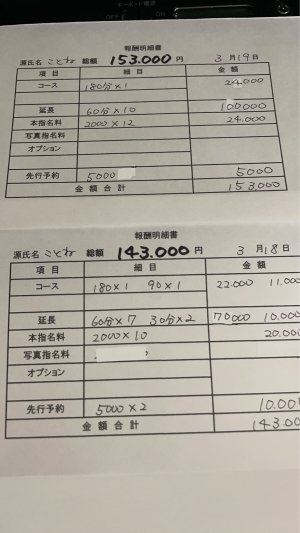 キーボード電源
OFF ON
報酬明細書
源氏名 ことね 総額 153.000 円 3月19日
項目 細目 金額
コース 180分×1 24.000
延長 60分×10 100000
本指名料 2000×12 24.000
写真指名料
オプション
先行予約 5000 5000
金額合計 153,000
報酬明細書
源氏名 ことね 総額 143.000 円 3月18日
項目 細目 金額
コース 180×1 90×1 22.000 11.00
延長 60分×7 30分×2 70000 10.000
本指名料 2000×10 20.000
写真指名料
オプション
先行予約 5000×2 10.000
金額合計 143.00